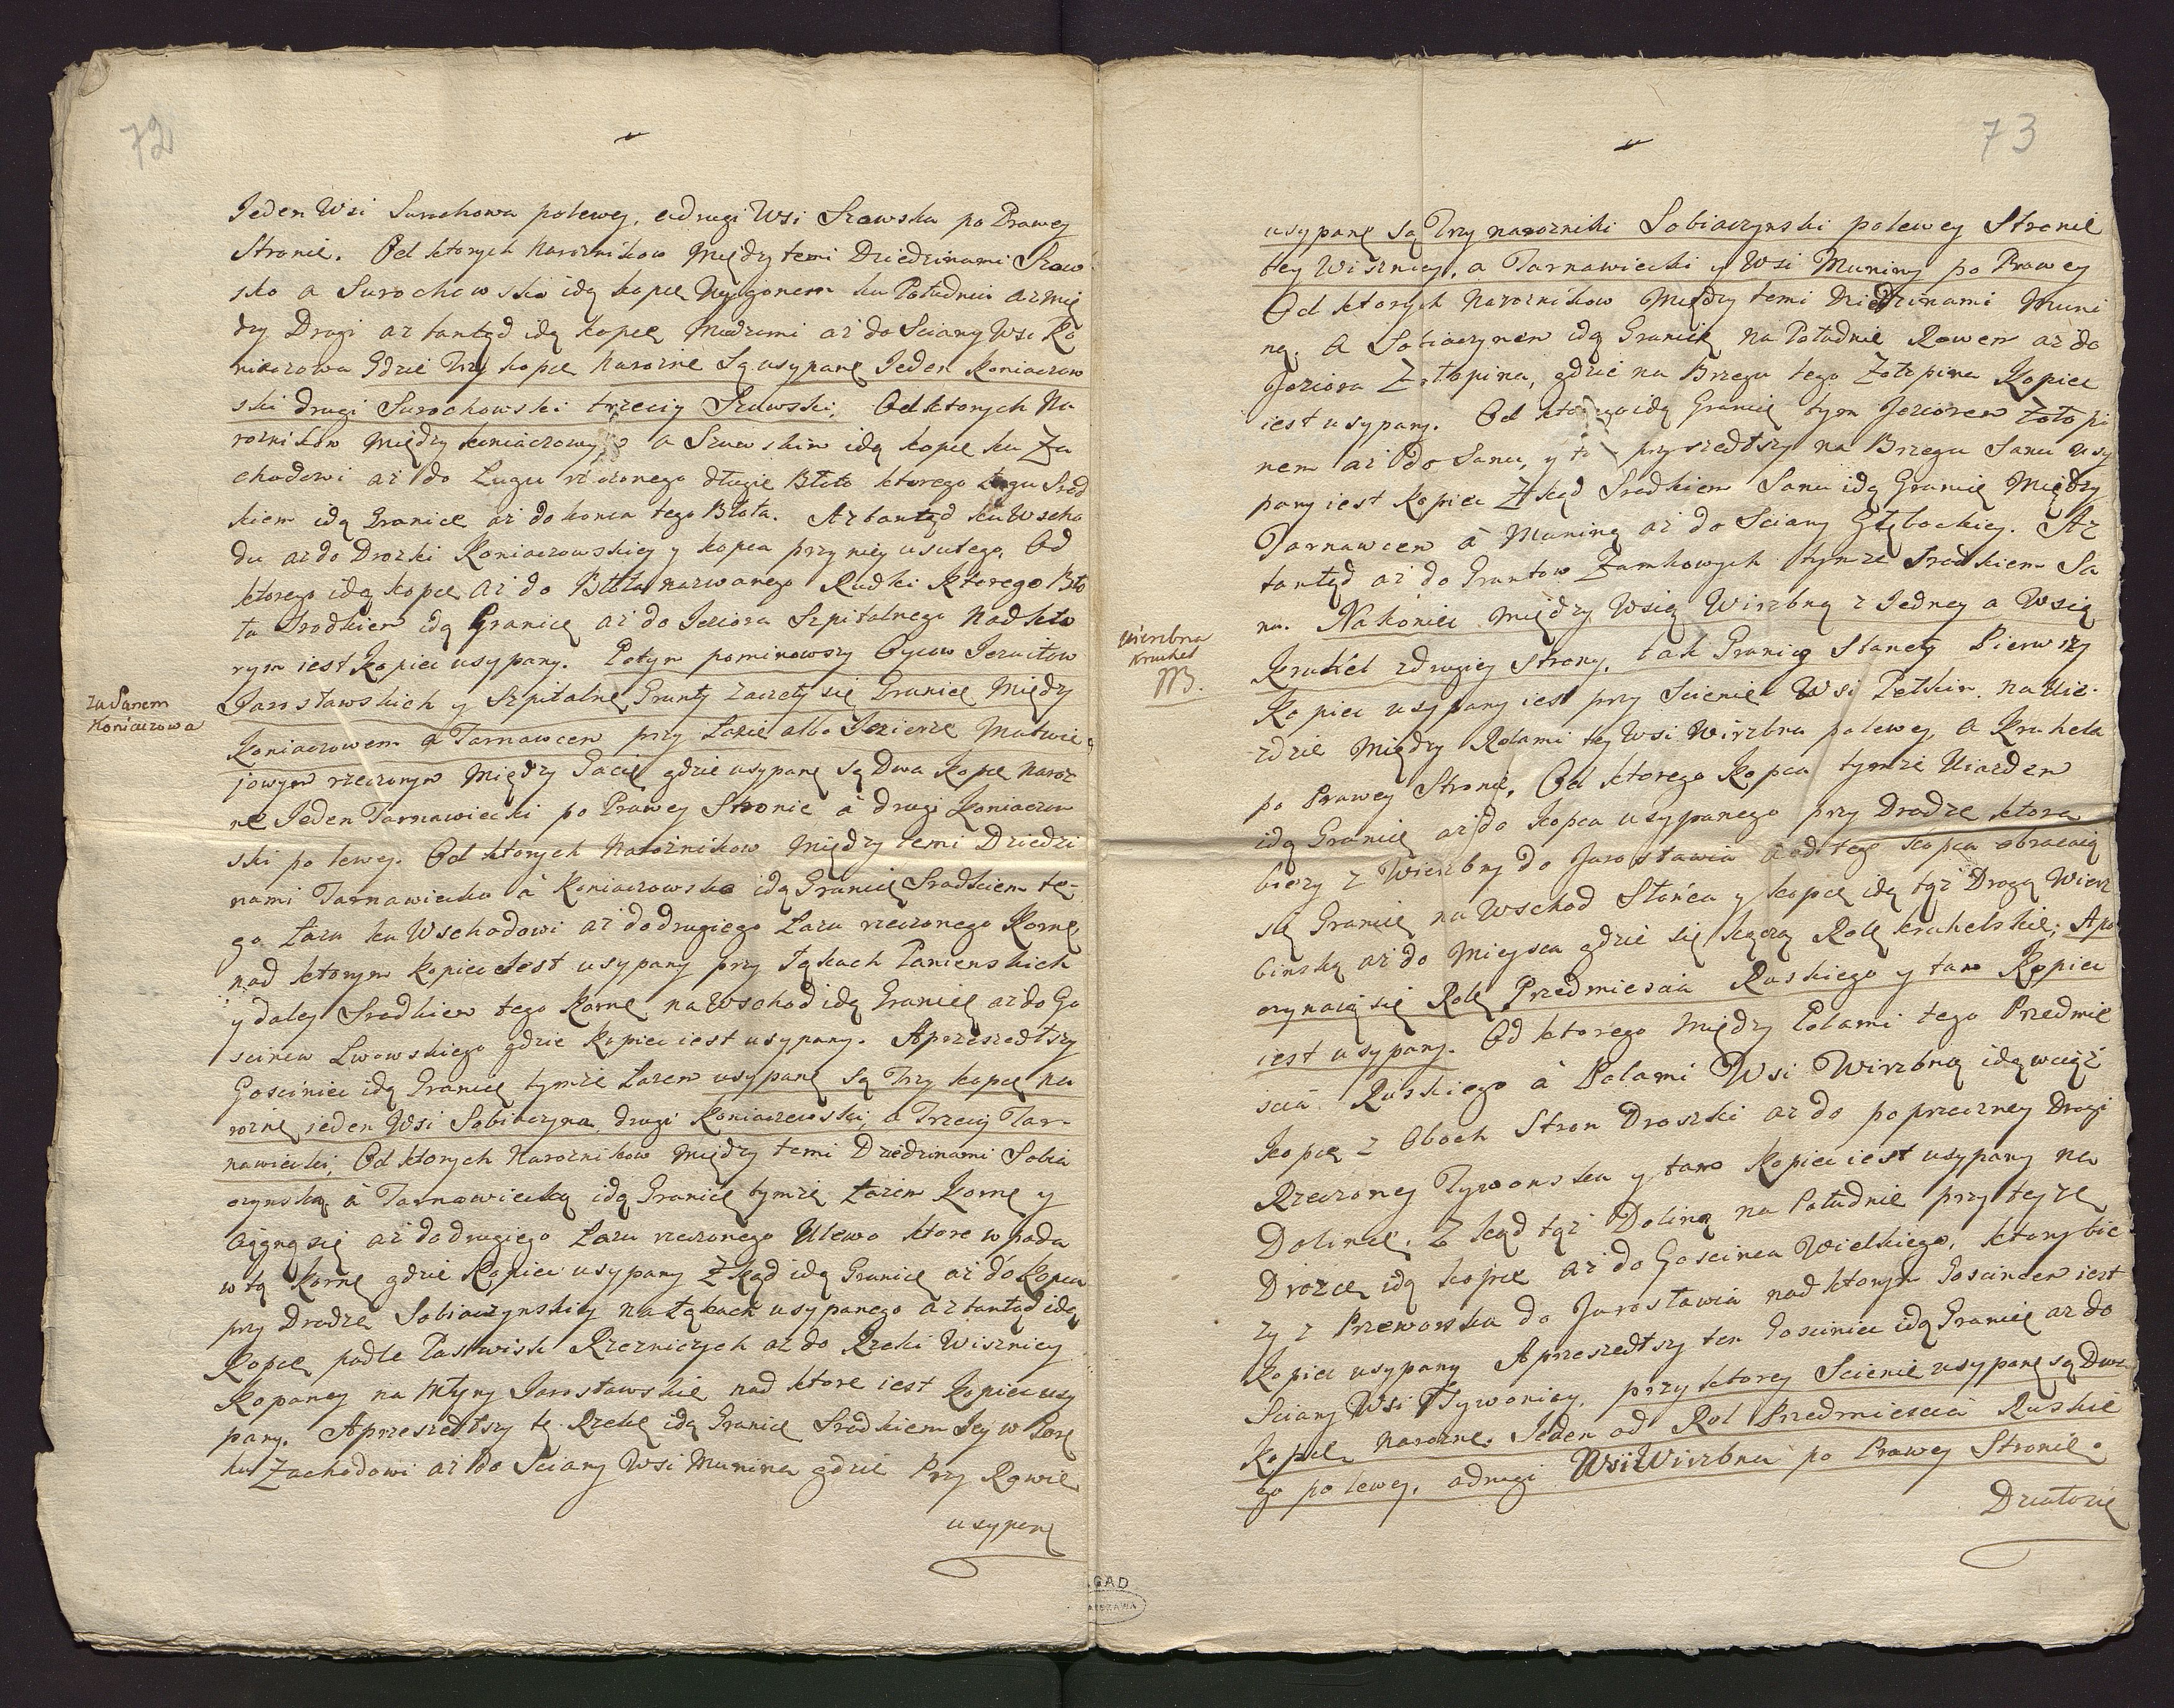 72
Jeden Wsi Surochowa polewey, adrugi Wsi Szawska po Prawey
Stronie. Od ktorych Naroznikow Między temi Dziedzinami Szaw
sko a Surochowska idą kopce Wygonem ku Południu aż mię
dzy Drogi az tamtąd idą kopce Miedzami aż do Sciany Wsi Ko
niaczowa Gdzie Trzy kopce Narozne Są usypane Jeden Koniaczow
ski drugi Surochowski trzeciy Szawski, Od ktorych Na
roznikow między koniaczowym a Szawskim idą kopce ku Za
chodowi aż do Ługu rzeczonego długie Błoto ktorego Ługu Srod
kiem idą Granice aż do konca tego Błota. Az tamtąd ku Wscho
du aż do Drozki Koniaczowskiey y kopca przy niey usutego, Od
ktorego idą kopce aż do Błota nazwanego Rudki ktorego Bło
ta Srodkiem idą Granice aż do Jeziora Szpitalnego Nad kto
rym iest Kopiec usypany. Potym pominowszy Oycow Jezuitow
Jarosławskich y Szpitalne Grunty zaczęły się Granice Między
Koniaczowem a Tarnawcem przy Łazie albo Jezierze Matwie
jowym rzeczonym Między Gacie gdzie usypane są Dwa Kopce Naroz
ne Jeden Tarnawiecki po Prawey Stronie à drugi Koniaczow
ski po lewey. Od ktorych Naroznikow między temi Dziedzi
nami Tarnawiecko à Koniaczowsko idą Granice Srodkiem te-
go Łazu ku Wschodowi aż do drugiego Łazu rzeczonego Korne,
nad ktorym kopiec Jest usypany przy Łąkach Panienskich
y daley Srodkiem tego Korne na Wschod idą Granice aż do Go
scinca Lwowskiego gdzie Kopiec iest usypany. Aprzeszedłszy
Gosciniec idą Granice tymże Łazem usypane są Trzy kopce na
rozne, jeden Wsi Sobiaczyna, drugi Koniaczewski, a Trzeciy Tar-
nawiecki, Od ktorych Naroznikow między temi Dziedzinami Sobia
czynską à Tarnawiecką idą Granice tymże Łazem Korne y
Ciągną się aż do drugiego Łazu rzeczonego Ulewo ktore wpada
w tę Korne gdzie Kopiec usypany Zkąd idą Granice aż do Kopca
przy Drodze Sobiaczynskiey na Łąkach usypanego az tamtąd idą
Kopce podle Pastwisk Rzezniczych aż do Rzeki Wisznicy
Kopaney na Młyny Jarosławskie nad ktore iest Kopiec usy
pany. Aprzeszedłszy tę Rzekę idą Granice Srodkiem Jey w Gorę
ku Zachodowi aż do Sciany Wsi Munina gdzie Przy Rowie
usypane
za Sanem
Koniaczowa
73
usypane są Trzy narozniki Sobiaczynski polewey Stronie
tey Wisznicy, a Tarnawiecki y Wsi Muniny po Prawey
Od ktorych Naroznikow Między temi Dziedzinami Muni
ną. A Sobiaczynem idą Granice na Południe Rowem aż do
Jeziora Zołopina, gdzie na Brzegu tego Zołopina Kopiec
iest usypany. Od idą Granice tym Jeziorem Zołopi
nem aż do Sanu, y przyszedłszy na Brzegu Sanu usy
pany iest Kopiec Zkąd Srodkiem Sanu idą Granice Między
Tarnawcem à Muniną aż do Sciany Głębockiey. Az
tamtąd aż do Gruntow Zamkowych tymze Srodkiem Sa
nu. Nakoniec między Wsią Wirzbną z Jedney a Wsią
Kruhel zdrugiey strony, tak Granice Staneły Pierwszy
Kopiec usypany iest przy Scienie Wsi Pełkin, na Uie-
zdzie Między Rolami tey Wsi Wirzbna polewey, a Kruhela
po Prawey Stronie, Od ktorego Kopca tymże Uiazdem
idą Granice aż do Kopca usypanego przy Drodze ktora
bieży z Wierzbny do Jarosławia à od tego kopca obracaią
się Granice na Wschod Słońca y kopce idą tąż Drogą Wierz
binską aż do Mieysca gdzie się kączą Role kruhelskie, Apo
czynaią się Role Przedmiescia Ruskiego y tam Kopiec
iest usypany. Od ktorego Między Polami tego Przedmie
scia Ruskiego à Polami Wsi Wirzbną idą wciąż
Kopce z Oboch Stron Droszki aż do poprzeczney Drogi
Rzeczoney Tywonska y tam Kopiec iest usypany na
Dolinie. Z kąd tąż Doliną na Południe przy teyze
Drozce idą kopce aż do Goscinca Wielkiego, ktory bie
zy z Przeworska do Jarosławia nad ktorym Goscincem iest
Kopiec usypany Aprzeszedłszy ten Gosciniec idą Granice aż do
Sciany Wsi Tywoniey, przy ktorey Scienie usypane są Dwa
Kopce Narozne. Jeden od Rol Przedmiescia Ruskie
go polewey, adrugi Wsi Wirzbna po Prawey Stronie.
wierzbna
Kruhel
NB.
AGAD
WARSZAWA